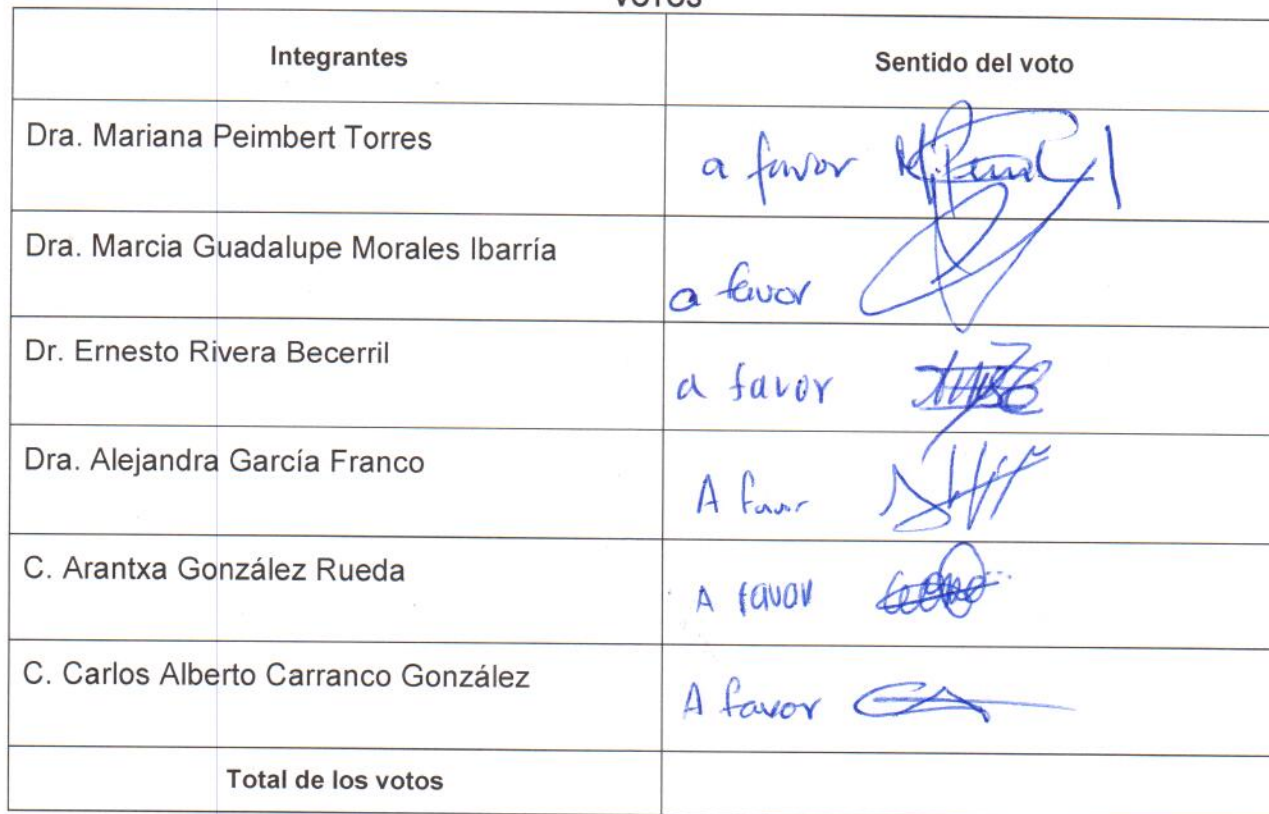 VOTOS
Integrantes Sentido del voto
Dra. Mariana Peimbert Torres a favor
Dra. Marcia Guadalupe Morales Ibarría a favor
Dr. Ernesto Rivera Becerril a favor
Dra. Alejandra García Franco A favor
C. Arantxa González Rueda A favor
C. Carlos Alberto Carranco González A favor
Total de los votos